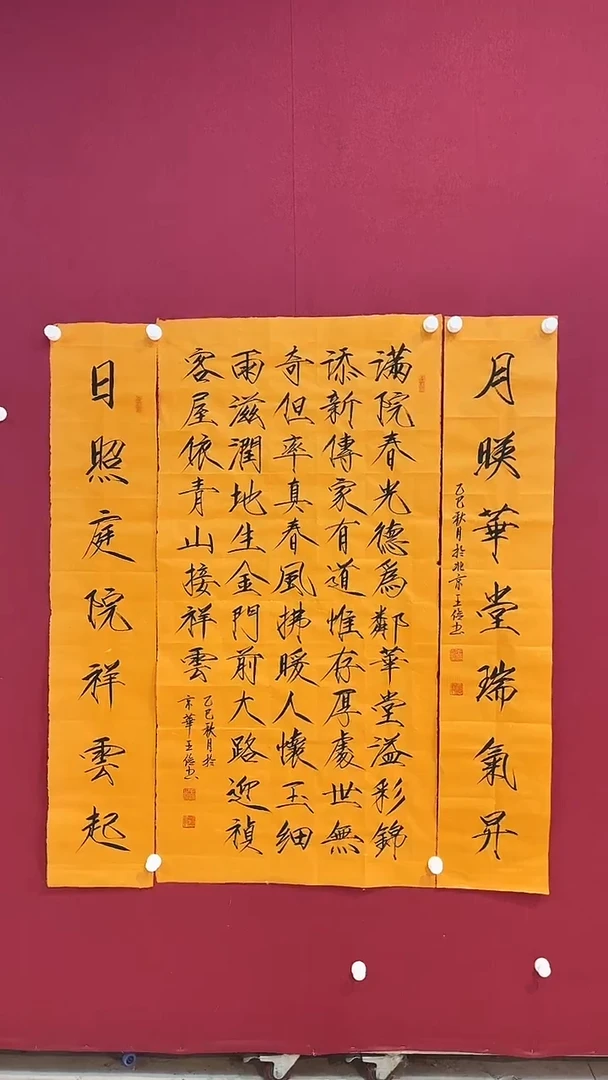 月暎華堂瑞氣昇
乙巳秋月於北京王書
滿院春光德為鄰華堂溢彩錦
添新傳家有道惟存厚處世無
奇但率真春風拂暖人懷玉細
雨滋潤地生金門前大路迎禎
客屋依青山接祥雲
乙巳秋月於
京華王書
日照庭院祥雲起